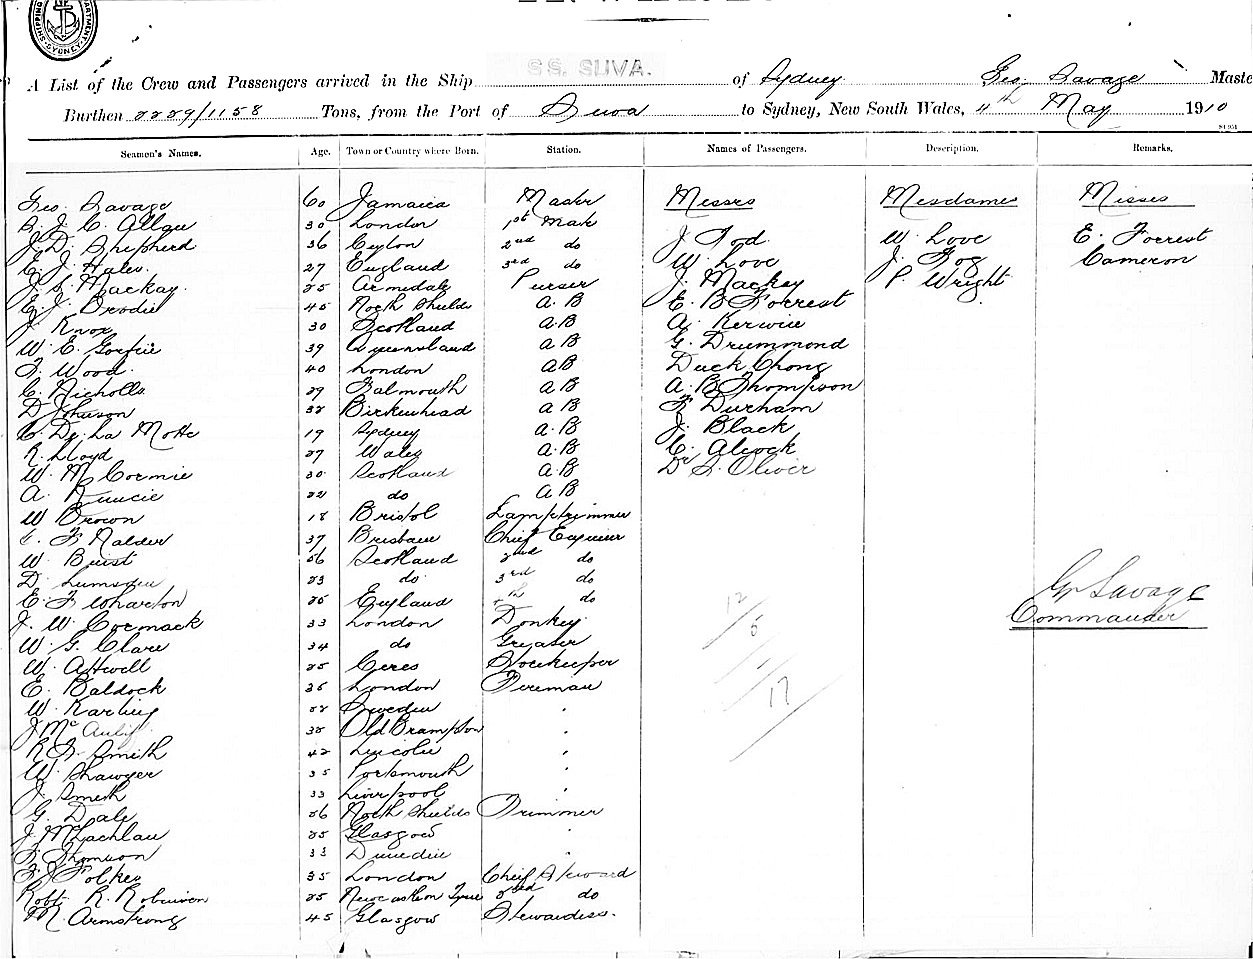 SHIPPING DEPARTMENT SYDNEY
A List of the Crew and Passengers arrived in the Ship S.S. SUVA. of Sydney Geo. Savage Maste
Burthen 2229/1158 Tons, from the Port of Suva to Sydney, New South Wales, 4th May 1910
Seamen's Names. Age. Town or Country where Born. Station. Names of Passengers. Description. Remarks.
Geo. Savage 60 Jamaica Master Messrs Mesdames Misses
J. C. Allan 30 London 1st Mate
J. D. Shepherd 36 Ceylon 2nd do J. Tod W. Love E. Forrest
C. J. Hales 27 England 3rd do W. Love J. Fog Cameron
J. S. Mackay 25 Armidale Purser J. Mackay P. Wright
E. J. Brodie 45 North Shields A.B E. B. Forrest
J. Knox 30 Scotland A.B A. Kerwin
W. E. Gorfine 39 Queensland A B G. Drummond
F. Wood 40 London A B Duck Chong
C. Nicholls 29 Falmouth A B A. B. Thompson
D. Johnson 32 Birkenhead A B F. Durham
C. De La Motte 19 Sydney A.B J. Black
R. Lloyd 27 Wales A.B C. Alcock
W. McCormie 30 Scotland A.B Dr. S. Oliver
A. Runcie 22 do A B
W Brown 18 Bristol Lamptrimmer
C. F. Nalder 37 Brisbane Chief Engineer
W. Buist 26 Scotland 2nd do
D. Lumsden 23 do 3rd do
E. F. Wharton 25 England 4th do
G. Savage
J. W. Cormack 33 London Donkey
Commander
W. S. Clare 34 do Greaser
W. Attwell 25 Ceres Storekeeper
E. Baldock 35 London Fireman
W. Karling 22 Sweden "
J. McAulif 32 Old Brampton "
R. F. Smith 42 Lincoln "
W. Shawyer 35 Portsmouth "
J. Smith 33 Liverpool "
G. Dale 26 North Shields Trimmer
J. McLachlan 25 Glasgow "
F. Thomson 33 Dunedin "
F. J. Folkes 35 London Cheif Steward
Robt. R. Robinson 25 Newcastle on Tyne 2nd do
M. Armstrong 45 Glasgow Stewardess.
12/5
17